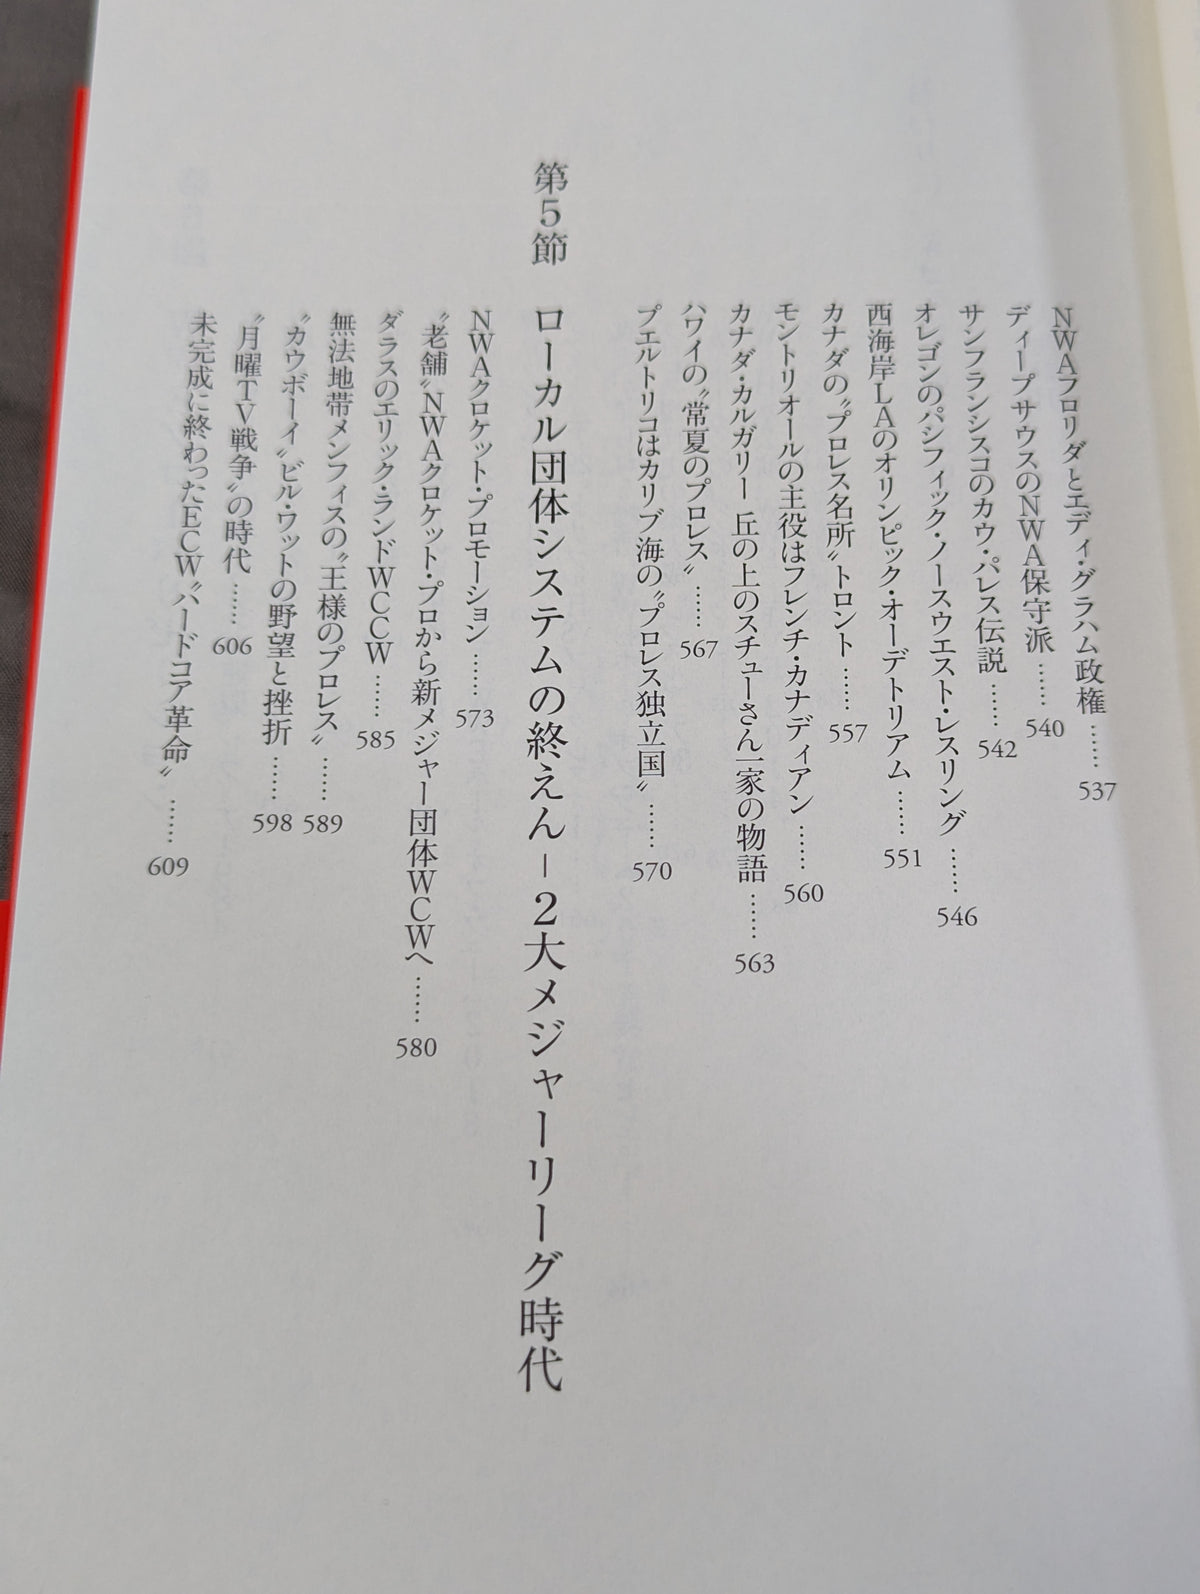 NWAフロリダとエディ・グラハム政権……537
ディープサウスのNWA保守派……540
サンフランシスコのカウ・パレス伝説……542
オレゴンのパシフィック・ノースウエスト・レスリング……546
西海岸LAのオリンピック・オーデトリアム……551
カナダの〝プロレス名所〟トロント……557
モントリオールの主役はフレンチ・カナディアン……560
カナダ・カルガリー 丘の上のスチューさん一家の物語……563
ハワイの〝常夏のプロレス〟……567
プエルトリコはカリブ海の〝プロレス独立国〟……570
第5節 ローカル団体システムの終えん−2大メジャーリーグ時代
NWAクロケット・プロモーション……573
〝老舗〟NWAクロケット・プロから新メジャー団体WCWへ……580
ダラスのエリック・ランドWCCW……585
無法地帯メンフィスの〝王様のプロレス〟……589
〝カウボーイ〟ビル・ワットの野望と挫折……598
〝月曜TV戦争〟の時代……606
未完成に終わったECW〝ハードコア革命〟……609